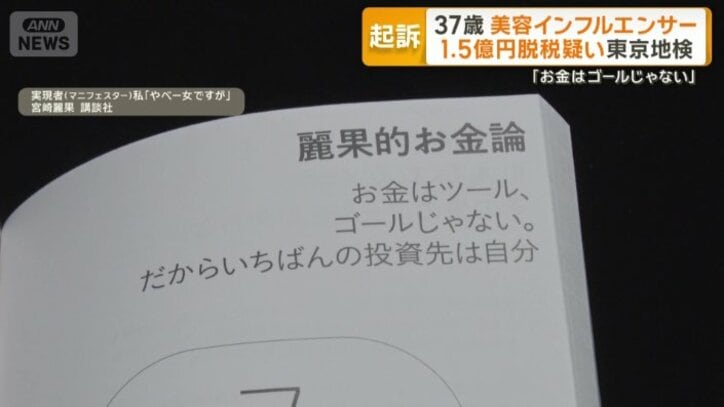 ANN
NEWS
起訴
37歳 美容インフルエンサー
1.5億円脱税疑い 東京地検
「お金はゴールじゃない」
実現者(マニフェスター)私「やべー女ですが」
宮崎麗果 講談社
麗果的お金論
お金はツール、
ゴールじゃない。
だからいちばんの投資先は自分